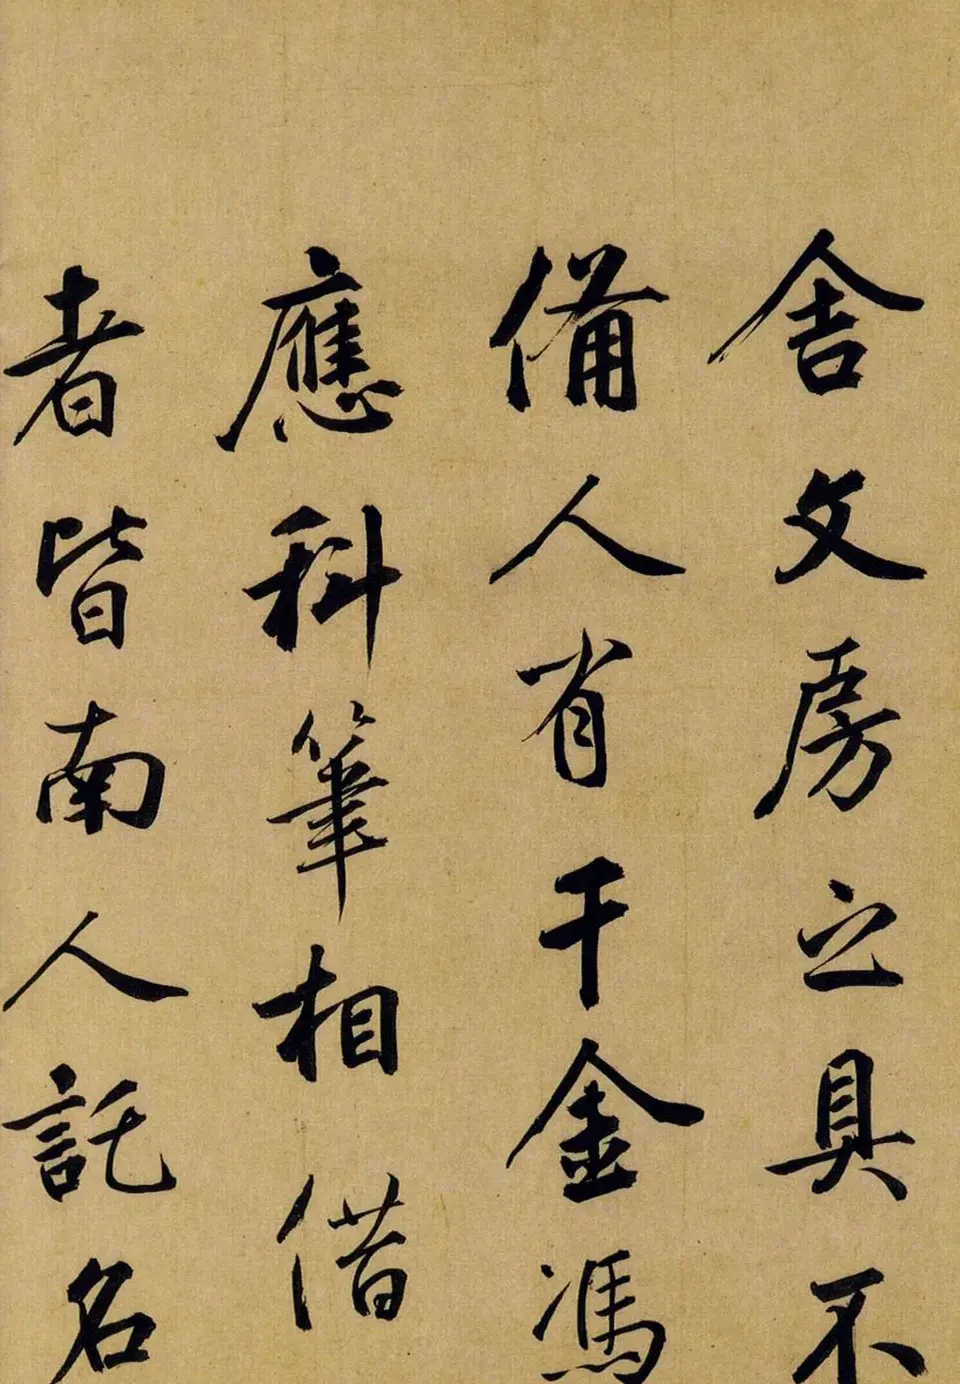 舍文房之具不
備人省千金馮
應科筆相借
者皆南人託名